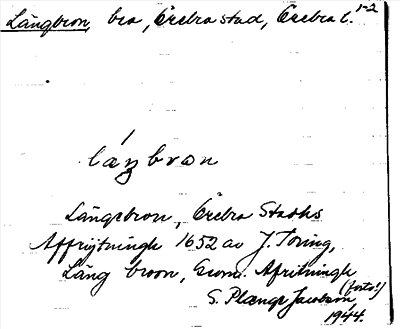 Långbron, bro, Örebro stad, Örebro l. 1-2
láŋbron
Långebron, Örebro Stadhs
Affrijtningh 1652 av J. Toring,
Lång broon, Afritningh
(foto!)
S.
1944.